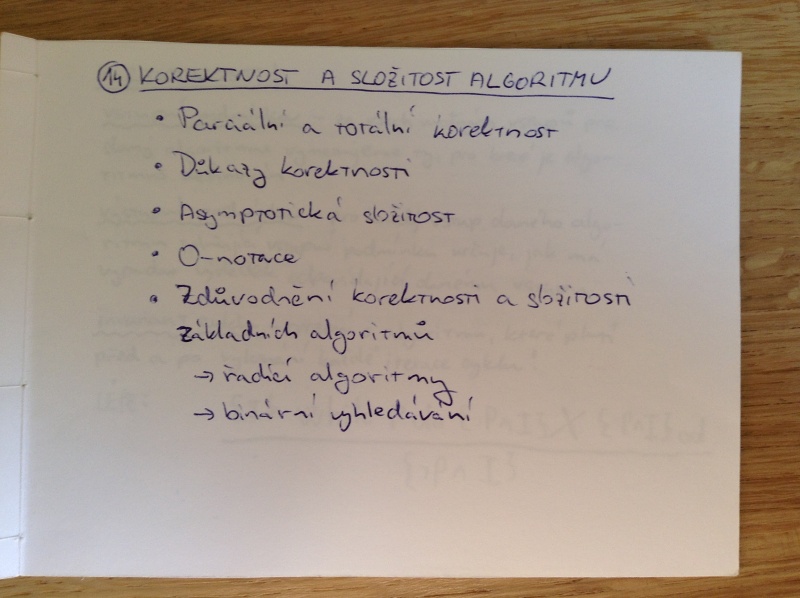 14 KOREKTNOST A SLOŽITOST ALGORITMU
• Parciální a totální korektnost
• Důkazy korektnosti
• Asymptotická složitost
• O-notace
• Zdůvodnění korektnosti a složitosti
základních algoritmů
→ řadící algoritmy
→ binární vyhledávání